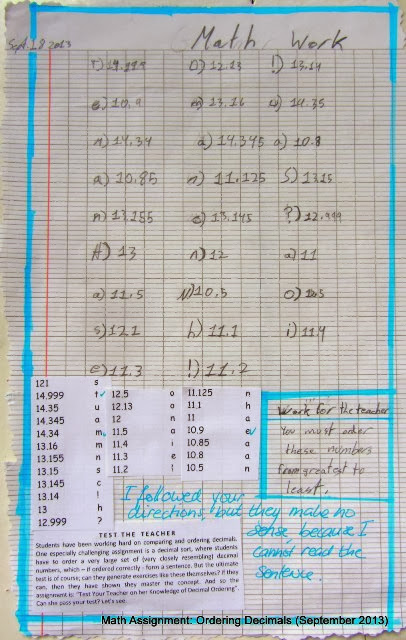 Sept. 18 2013
Math Work
T) 14.999 O) 12.13 !) 13.14
e) 10.9 m) 13.16 u) 14.35
m) 14.34 a) 14.345 a) 10.8
a) 10.85 n) 11.125 S) 13.15
n) 13.155 c) 13.145 ?) 12.999
H) 13 n) 12 a) 11
a) 11.5 N) 10.5
s) 121 h) 11.1 i) 11.4
e) 11.3 !) 11.2
121 s
14.999 t
14.35 u
14.345 a
14.34 m
13.16 m
13.155 n
13.15 s
13.145 c
13.14 !
13 h
12.999 ?
12.5 o
12.13 o
12 n
11.5 a
11.4 i
11.3 e
11.2 !
11.125 n
11.1 h
11 a
10.9 e
10.85 a
10.8 a
10.5 n
Work for the teacher
You must order
these numbers
from greatest to
least.
I followed your
directions, but they make no
sense because I
cannot read the
sentence.
TEST THE TEACHER
Students have been working hard on comparing and ordering decimals.
One especially challenging assignment is a decimal sort, where students
have to order a very large set of (very closely resembling) decimal
numbers, which – if ordered correctly - form a sentence. But the ultimate
test is of course; can they generate exercises like these themselves? If they
can, then they have shown they master the concept. And so the
assignment is: "Test Your Teacher on her Knowledge of Decimal Ordering".
Can she pass your test? Let's see.
Math Assignment: Ordering Decimals (September 2013)